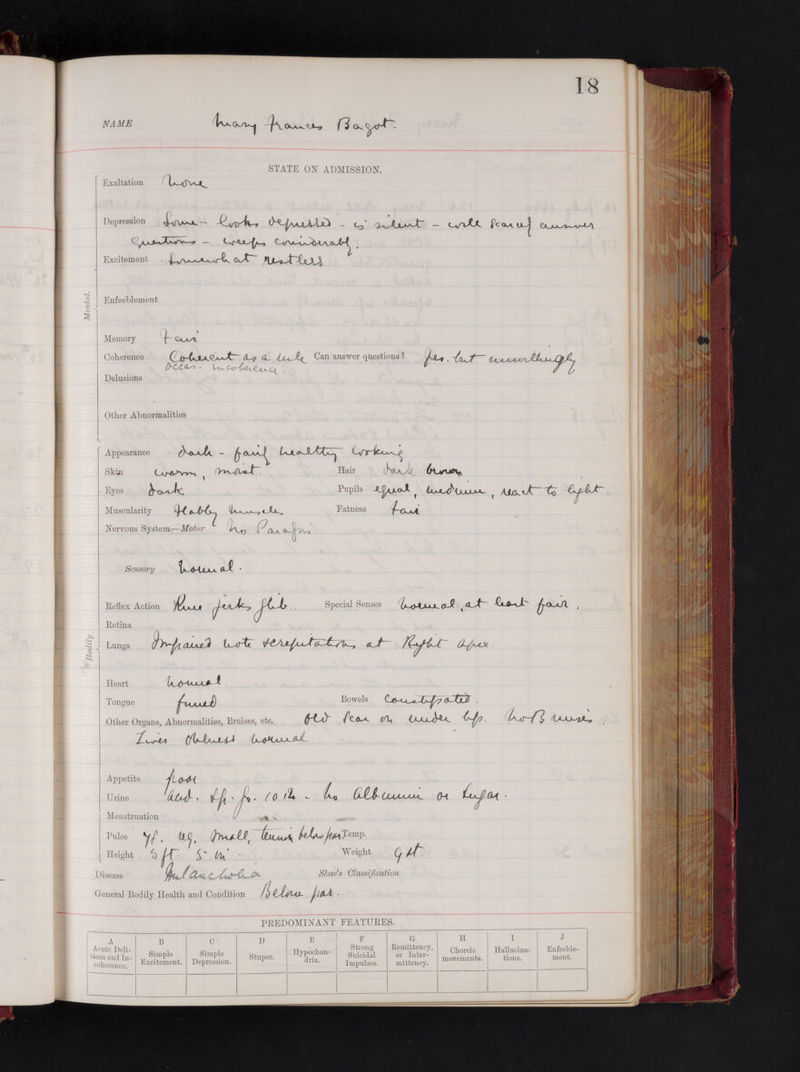 18
NAME Mary Frances Bagot.
STATE ON ADMISSION.
Mental.
Exaltation None
Depression Some – looks depressed – is silent – will scarcely answer
questions – weeps considerably.
Excitement Somewhat restless
Enfeeblement
Memory Fair
Coherence Coherent as a rule Can answer questions? yes. but unwillingly
Occas. incoherence
Delusions
Other Abnormalities
Bodily
Appearance dark – fairly healthy looking
Skin warm, moist. Hair dark brown
Eyes dark Pupils equal, medium, react to light.
Muscularity flabby muscles Fatness fair
Nervous System—Motor No Paralysis
Sensory Normal.
Reflex Action Knee jerks glib. Special Senses Normal, at least fair.
Retina
Lungs Impaired note & crepitations at Right apex.
Heart Normal
Tongue furred Bowels Constipated.
Other Organs, Abnormalities, Bruises, etc. Old scar on under lip. No
Liver dulness normal
Appetite poor
Urine acid. Sp. gr. – no albumin or sugar.
Menstruation
Pulse reg. small, tension below par Temp.
Height 5 ft. 5 in Weight
Disease Melancholia Skae's Classification
General Bodily Health and Condition Below par.
PREDOMINANT FEATURES.
A B C D E F G H I J
Acute Delirium and Incoherence. Simple Excitement. Simple Depression. Stupor. Hypochondria. Strong Suicidal Impulses. Remittency, or Intermittency. Choreic movements. Hallucinations. Enfeeblement.